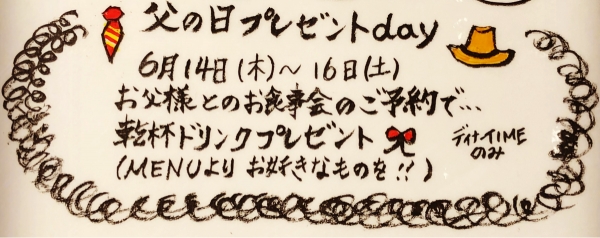 父の日プレゼントday
6月14日(木)～16日(土)
お父様とのお食事会のご予約で...
乾杯ドリンクプレゼント
(MENUよりお好きなものを!!)
ディナーTIME
のみ